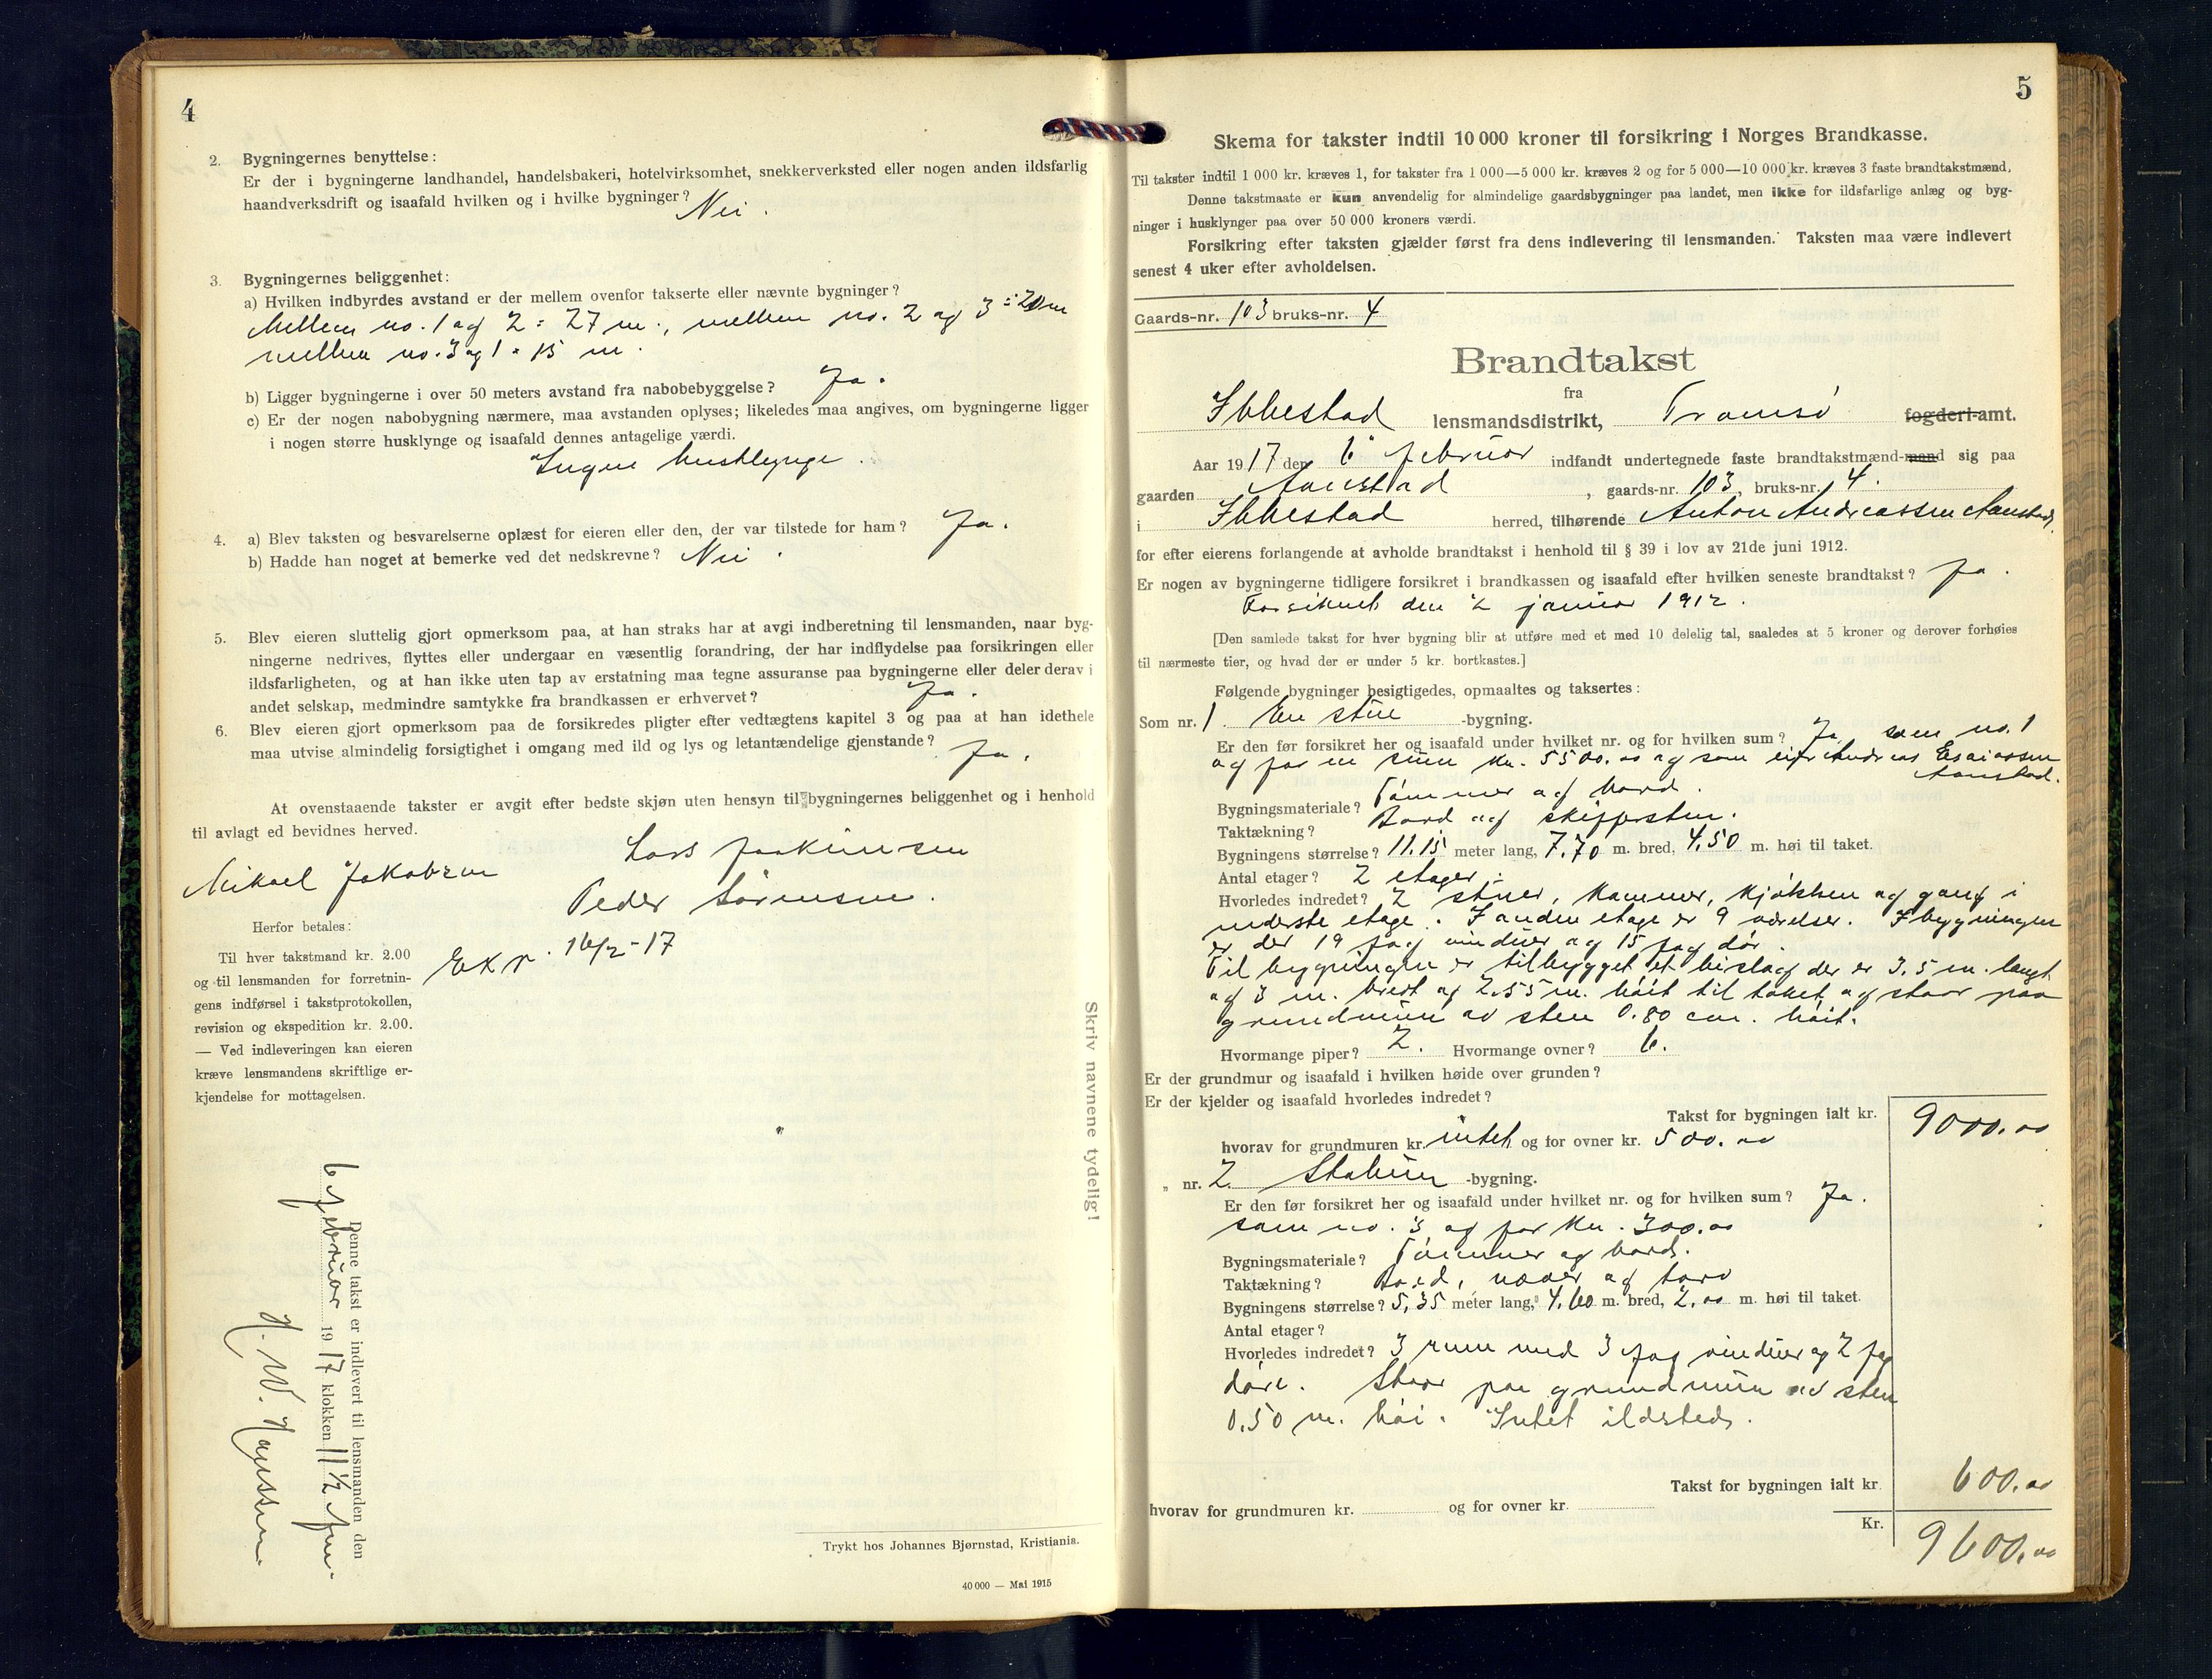 4
2. Bygningernes benyttelse:
Er der i bygningerne landhandel, handelsbakeri, hotelvirksomhet, snekkerverksted eller nogen anden ildsfarlig
haandverksdrift og isaafald hvilken og i hvilke bygninger? Nei.
3. Bygningernes beliggenhet:
a) Hvilken indbyrdes avstand er der mellem ovenfor takserte eller nævnte bygninger?
Mellem no. 1 og 2 = 27 m., mellem no. 2 og 3 = 20 m
mellem no. 3 og 1 = 15 m.
b) Ligger bygningerne i over 50 meters avstand fra nabobebyggelse? Ja.
c) Er der nogen nabobygning nærmere, maa avstanden oplyses; likeledes maa angives, om bygningerne ligger
i nogen større husklynge og isaafald dennes antagelige værdi.
Ingen husklynge.
4. a) Blev taksten og besvarelserne oplæst for eieren eller den, der var tilstede for ham? Ja.
b) Hadde han noget at bemerke ved det nedskrevne? Nei.
5. Blev eieren sluttelig gjort opmerksom paa, at han straks har at avgi indberetning til lensmanden, naar byg-
ningerne nedrives, flyttes eller undergaar en væsentlig forandring, der har indflydelse paa forsikringen eller
ildsfarligheten, og at han ikke uten tap av erstatning maa tegne assuranse paa bygningerne eller deler derav i
andet selskap, medmindre samtykke fra brandkassen er erhvervet? Ja.
6. Blev eieren gjort opmerksom paa de forsikredes pligter efter vedtægtens kapitel 3 og paa at han idethele
maa utvise almindelig forsigtighet i omgang med ild og lys og letantændelige gjenstande? Ja.
At ovenstaaende takster er avgit efter bedste skjøn uten hensyn til bygningernes beliggenhet og i henhold
til avlagt ed bevidnes herved.
Mikael Jakobsen
Lars Joakimsen
Peder Sørensen.
Herfor betales:
Til hver takstmand kr. 2.00
og til lensmanden for forretnin-
gens indførsel i takstprotokollen,
revision og ekspedition kr. 2.00.
— Ved indleveringen kan eieren
kræve lensmandens skriftlige er-
kjendelse for mottagelsen.
Exp. 16/2-17
Skriv navnene tydelig!
Denne takst er indlevert til lensmanden den
6 februar 1917 klokken 11 1/2 fm.
Trykt hos Johannes Bjørnstad, Kristiania.
40 000 — Mai 1915
5
Skema for takster indtil 10 000 kroner til forsikring i Norges Brandkasse.
Til takster indtil 1 000 kr. kræves 1, for takster fra 1 000—5 000 kr. kræves 2 og for 5 000—10 000 kr. kræves 3 faste brandtakstmænd.
Denne takstmaate er kun anvendelig for almindelige gaardsbygninger paa landet, men ikke for ildsfarlige anlæg og byg-
ninger i husklynger paa over 50 000 kroners værdi.
Forsikring efter taksten gjælder først fra dens indlevering til lensmanden. Taksten maa være indlevert
senest 4 uker efter avholdelsen.
Gaards-nr. 103 bruks-nr. 4
Brandtakst
fra
Ibbestad lensmandsdistrikt, Tromsö fogderi-amt.
Aar 1917 den 6 februar indfandt undertegnede faste brandtakstmænd-mand sig paa
gaarden Aanstad, gaards-nr. 103, bruks-nr. 4.
i Ibbestad herred, tilhørende Anton Andreassen Aanstad,
for efter eierens forlangende at avholde brandtakst i henhold til § 39 i lov av 21de juni 1912.
Er nogen av bygningerne tidligere forsikret i brandkassen og isaafald efter hvilken seneste brandtakst? Ja.
Forsikret den 2 januar 1912.
[Den samlede takst for hver bygning blir at utføre med et med 10 delelig tal, saaledes at 5 kroner og derover forhøies
til nærmeste tier, og hvad der er under 5 kr. bortkastes.]
Følgende bygninger besigtigedes, opmaaltes og taksertes:
Som nr. 1 En stue -bygning.
Er den før forsikret her og isaafald under hvilket nr. og for hvilken sum? Ja som no. 1
og for en sum kr. 5500.00 og som eier Andreas Esaiassen
Aanstad.
Bygningsmateriale? Tömmer og bord.
Taktækning? Bord og skifersten.
Bygningens størrelse? 11.15 meter lang, 7.70 m. bred, 4.50 m. høi til taket.
Antal etager? 2 etager.
Hvorledes indredet? 2 stuer, kammer, kjökken og gang i
nederste etage. I anden etage er 9 værelser. I bygningen
er der 19 fag vinduer og 15 fag dör.
Til bygningen er tilbygget et bislag der er 3.5 m. langt
og 3 m. bredt og 2.55 m. höit til taket og staar paa
grundmur av sten 0.80 cm. höit.
Hvormange piper? 2. Hvormange ovner? 6.
Er der grundmur og isaafald i hvilken høide over grunden?
Er der kjelder og isaafald hvorledes indredet?
Takst for bygningen ialt kr. 9000.00
hvorav for grundmuren kr. intet og for ovner kr. 500.00
„ nr. 2. Stabur -bygning.
Er den før forsikret her og isaafald under hvilket nr. og for hvilken sum? Ja.
som no. 3 og for kr. 300.00
Bygningsmateriale? Tömmer og bord.
Taktækning? Bord, næver og torv
Bygningens størrelse? 5,35 meter lang, 4.60 m. bred, 2.00 m. høi til taket.
Antal etager?
Hvorledes indredet? 3 rum med 3 fag vinduer og 2 fag
döre. Staar paa grundmur av sten
0.50 m. höi. Intet ildsted.
Takst for bygningen ialt kr. 600.00
hvorav for grundmuren kr. og for ovner kr.
Kr. 9600.00